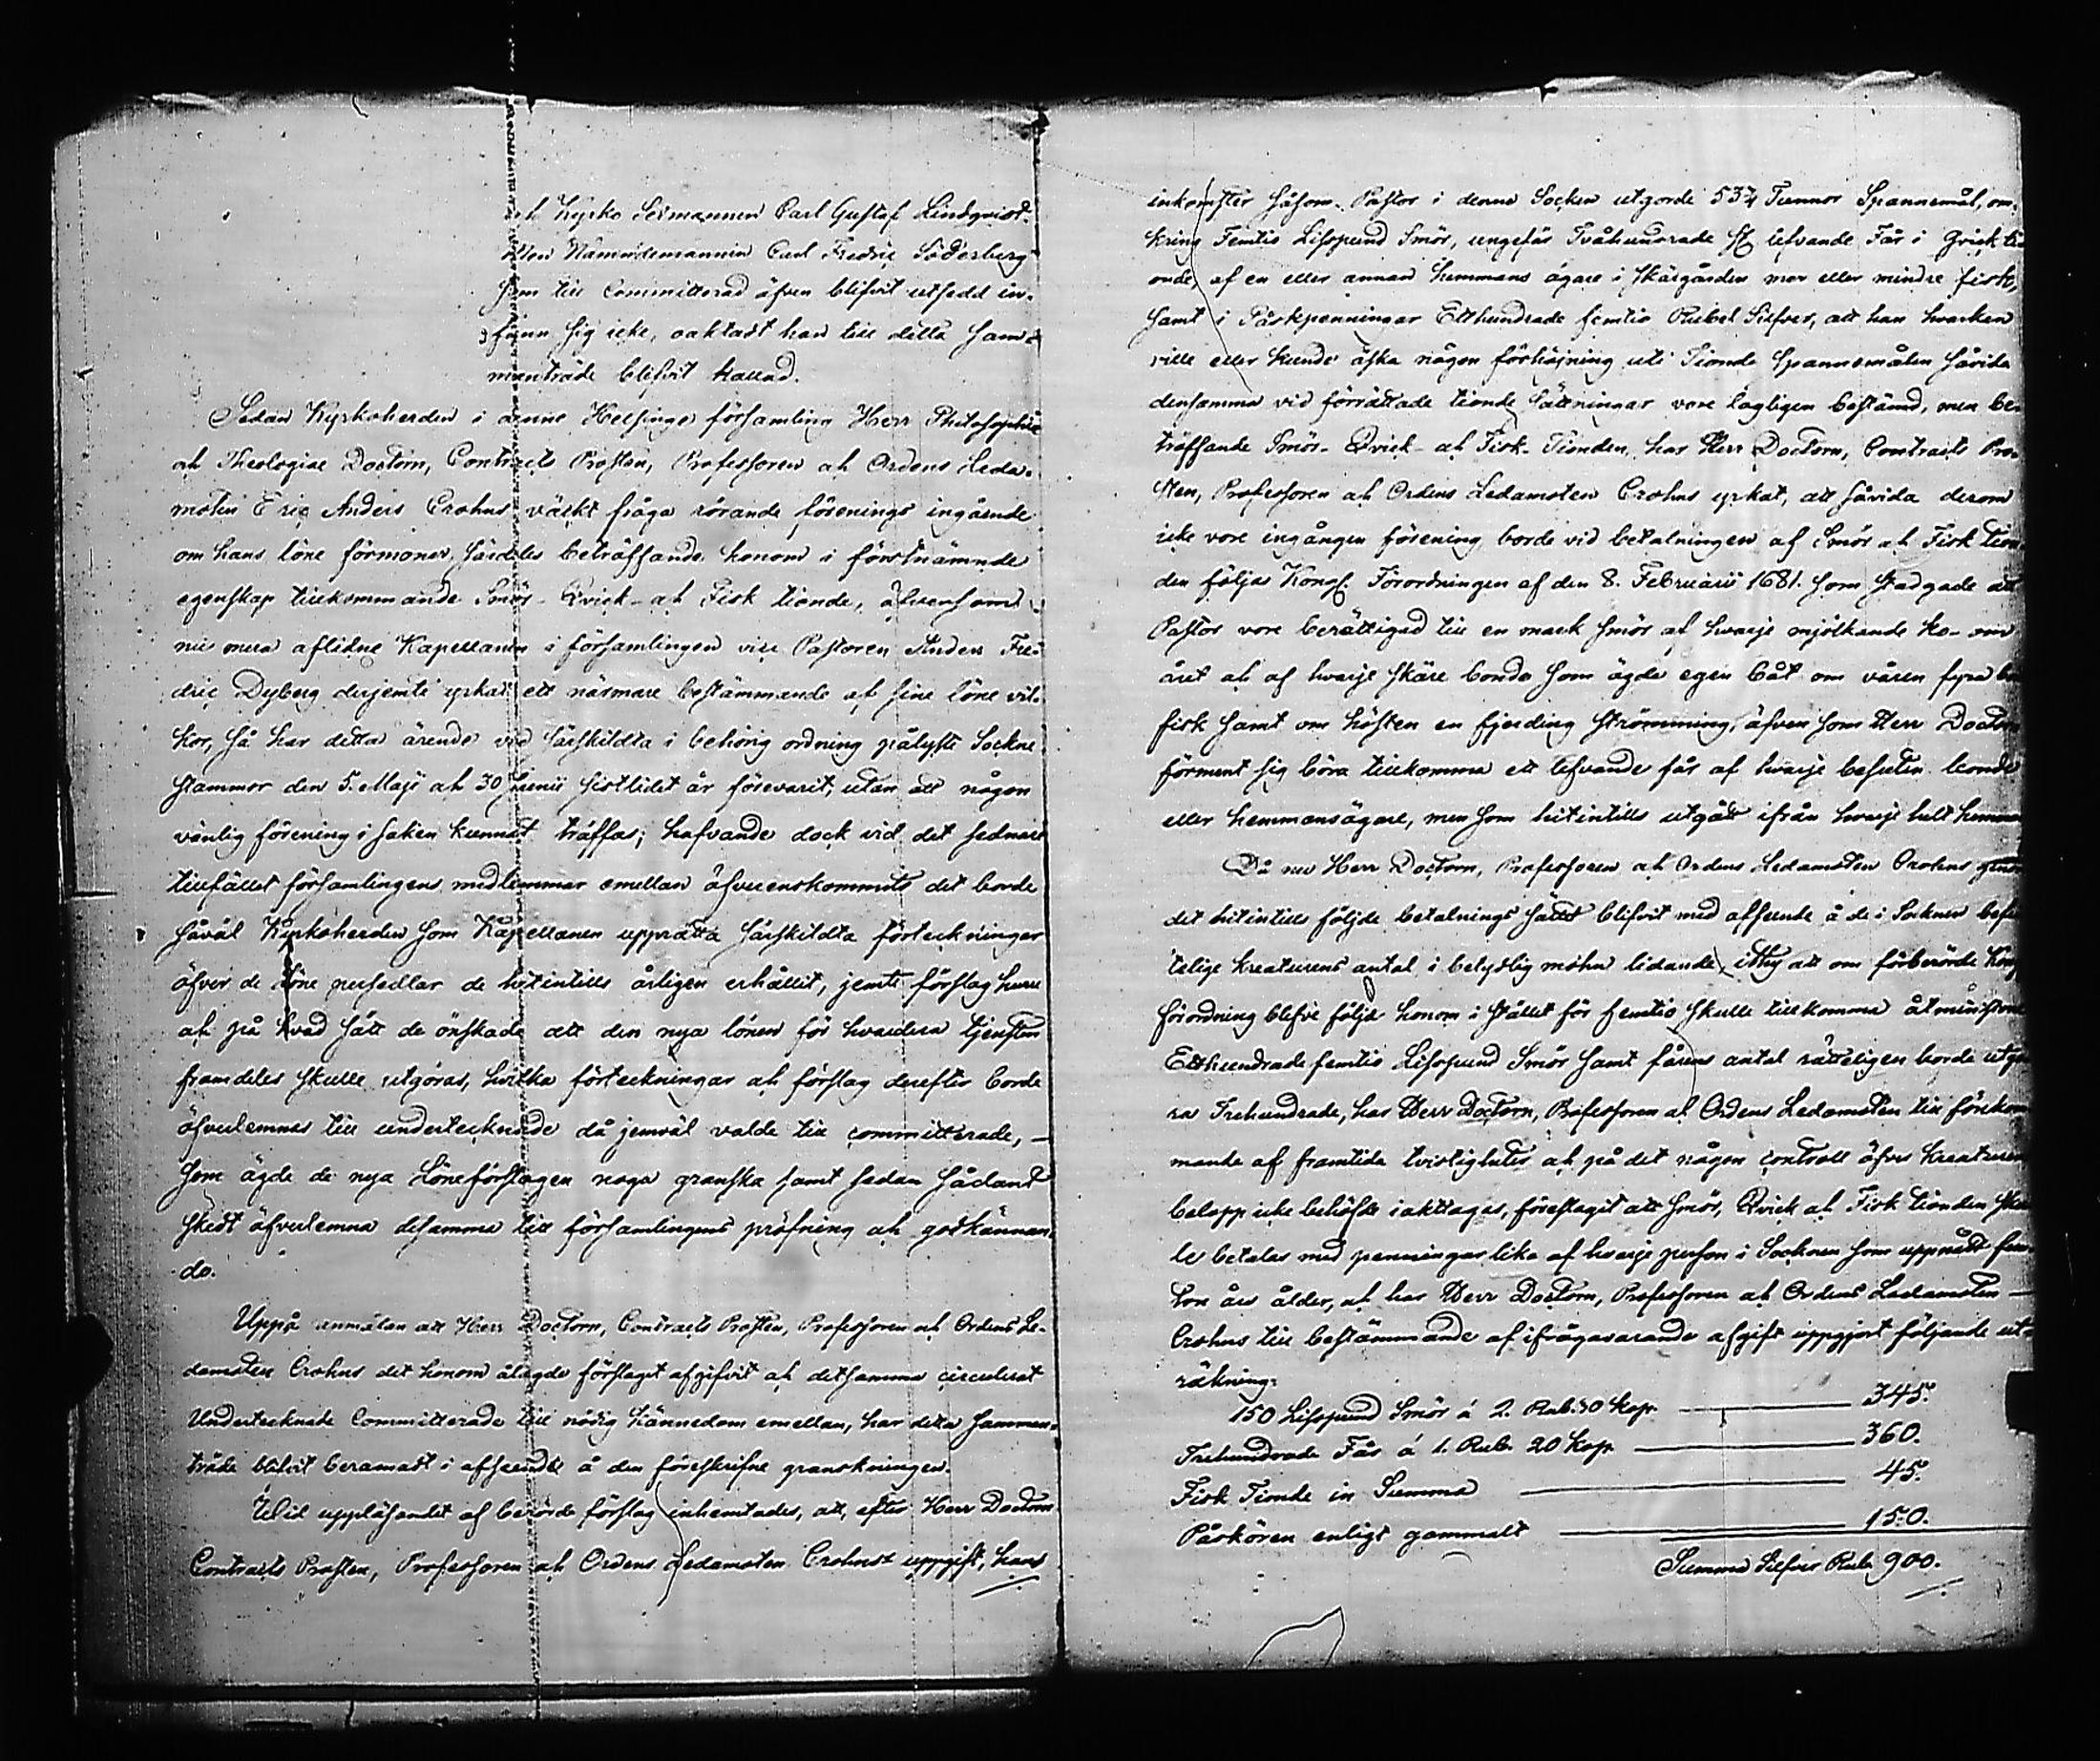 och Kyrko Sexmannen Carl Gustaf Lindqvist.
Men Nämndemannen Carl Fredric Söderberg
som till Committerad äfven blifvit utsedd in-
fann sig icke, oaktadt han till detta sam-
manträde blifvit kallad.
Sedan Kyrkoherden i denne Helsinge församling Herr Philosophiæ
och Theologiae Doctorn, Contracts Prosten, Professoren och Ordens Leda-
moten Eric Anders Crohns väckt fråga rörande förenings ingående
om hans löne förmoner, särdeles beträffande honom i förstnämnde
egenskap tillkommande Smör- Qvick- och Fisk tionde, äfvensom
nu mera aflidne Kapellanen i församlingen vice Pastoren Anders Fre-
dric Dyberg derjemte yrkat ett närmare bestämmande af sine löne vil-
kor, så har detta ärende vid särskildta i behörig ordning pålyste Sockne
stammor den 5. Maji och 30 Junii sistlidet år förevarit, utan att någon
vänlig förening i saken kunnat träffas; hafvande dock vid det sednare
tillfället församlingens medlemmar emellan öfverenskommits det borde
såväl Kyrkoherden som Kapellanen upprätta särskildta förteckningar
öfver de löne persedlar de hitintills årligen erhållit, jemte förslag huru
och på hvad sätt de önskade att den nya lönen för hvardera tjensten
framdeles skulle utgöras, hvilka förteckningar och förslag derefter borde
öfverlemnas till undertecknade då jemväl valde till committerade, —
som ägde de nya Löneförslagen noga granska samt sedan sådant
skedt öfverlemna desamma till församlingens pröfning och godkännan-
de.
Uppå anmälan att Herr Doctorn, Contracts Prosten, Professoren och Ordens Le-
damoten Crohns det honom ålagde förslaget afgifvit och detsamma circulerat
Undertecknade Committerade till nödig kännedom emellan, har detta samman-
träde blifvit beramadt i afseende å den föreskrifne granskningen.
Wid uppläsandet af berörde förslag inhemtades, att, efter Herr Doctorn
Contracts Prosten, Professoren och Ordens Ledamoten Crohns uppgift, hans
inkomster såsom Pastor i denna Socken utgorde 53¾ Tunnor Spannemål, om-
kring Femtio Lispund Smör, ungefär Tvåhundrade lefvande Får i Qvick ti-
onde, af en eller annan hemmans ägare i skärgården mer eller mindre fisk,
samt i Påskpenningar Etthundrade femtio Rubel Silfver, att han hvarken
ville eller kunde äska någon förhöjning uti Tionde Spannemålen såvida
densamma vid förrättade tionde sättningar vore lagligen bestämd, men be-
träffande Smör- Qvick- och Fisk- Tionden, har Herr Doctorn, Contracts Pro-
sten, Professoren och Ordens Ledamoten Crohns yrkat, att såvida derom
icke vore ingången förening borde vid betalningen af Smör och Fisk tion-
den följas Kongl. Förordningen af den 8. Februarii 1681. som stadgade att
Pastor vore berättigad till en mark smör af hvarje mjölkande ko om
året och af hvarje skäre bonde som ägde egen båt om våren fyra
fisk samt om hösten en fjerding strömming, äfven som Herr Doctorn
förment sig böra tillkomma ett lefvande får af hvarje besuten bonde
eller hemmansägare, men som hitintills utgått ifrån hvarje helt hemman
Då nu Herr Doctorn, Professoren och Ordens Ledamoten Crohns genom
det hitintills följde betalnings sättet blifvit med afseende å de i Socknen befin-
telige kreaturens antal i betydlig mohn lidande, ithy att om förberörde Kongl.
förordning blefve följd honom i stället för femtio skulle tillkomma åtminstone
Etthundrade femtio Lispund Smör samt fårens antal rätteligen borde utgö-
ra Trehundrade, har Herr Doctorn, Professoren och Ordens Ledamoten till förekom-
mande af framtida tvistigheter och på det någon controll öfver kreaturens
belopp icke behöfde iakttagas, föreslagit att smör, Qvick och Fisk tionden skul-
le betalas med penningar lika af hvarje person i Socknen som uppnått fem-
ton års ålder, och har Herr Doctorn, Professoren och Ordens Ledamoten —
Crohns till bestämmande af ifrågavarande afgift uppgjort följande ut-
räkning:
150 Lispund Smör á 2. Rub. 30 kop. — 345.
Trehundrade Får á 1. Rub. 20 kop. — 360.
Fisk Tionde in Summa — 45.
Påskören enligt gammalt — 150.
Summa Silfver Rub. 900.